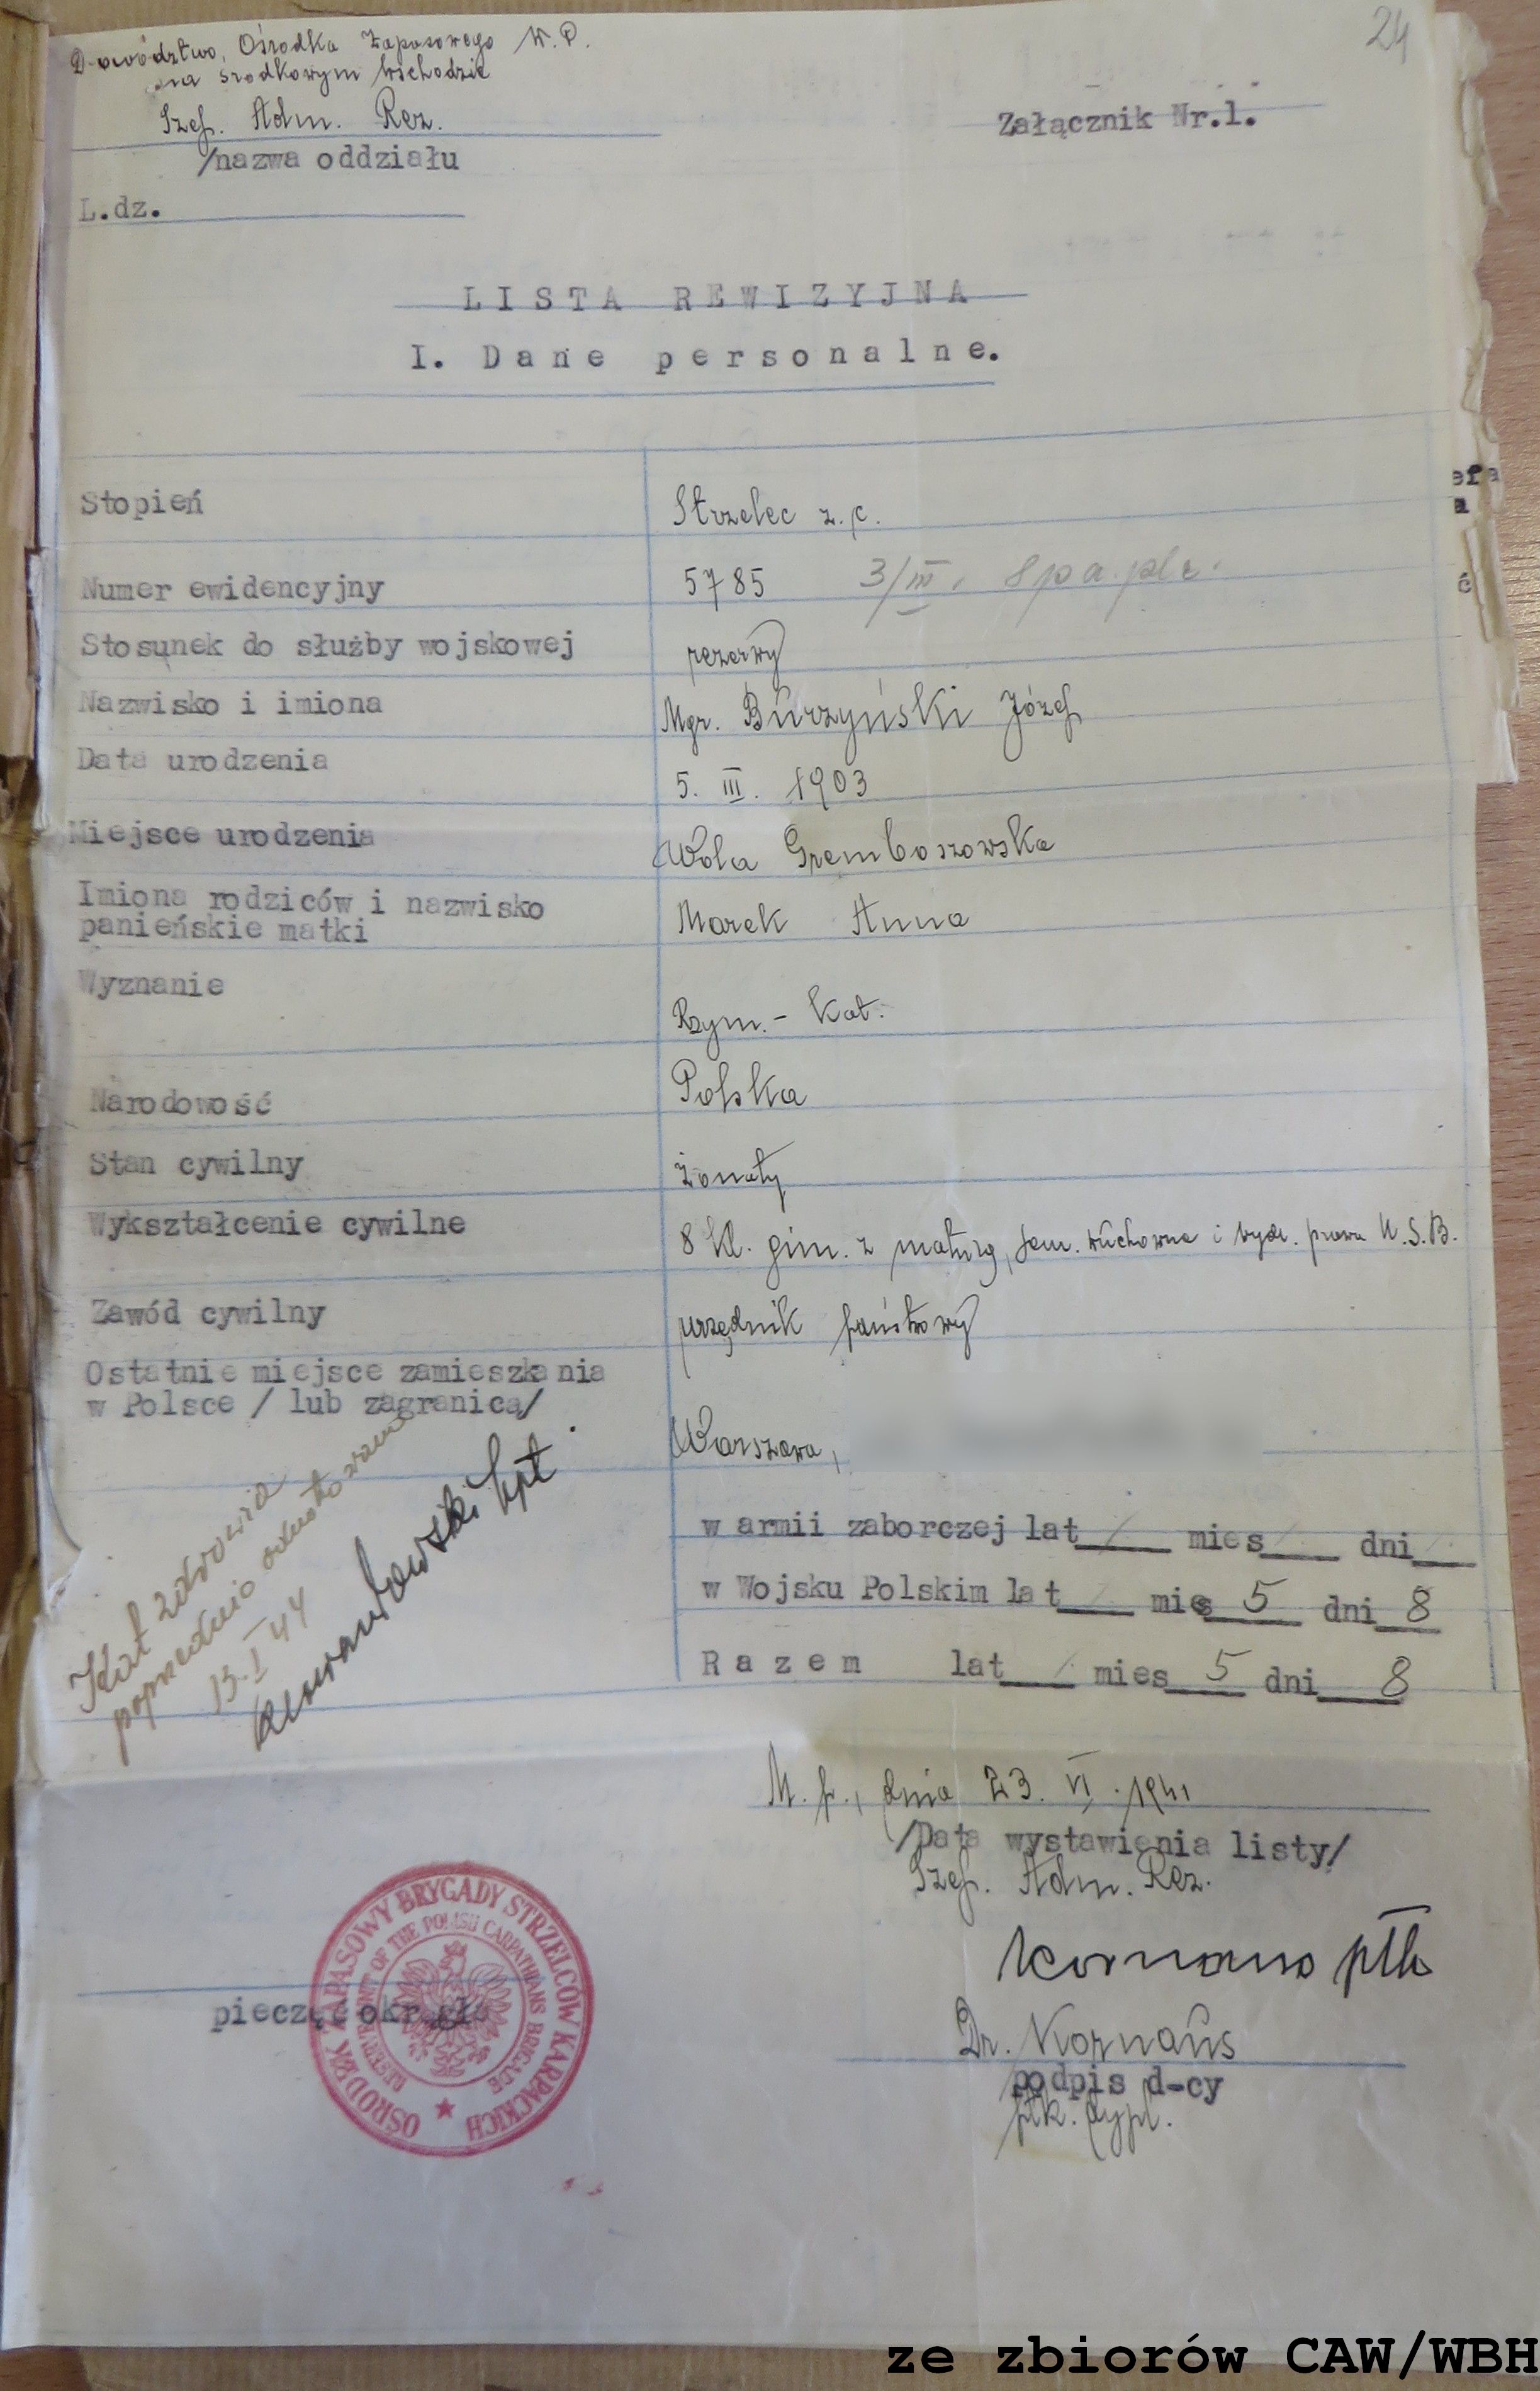 24
Dowództwo, Ośrodka Zapasowego W.P.
na środkowym Wschodzie
Szef. Adm. Rez.
/nazwa oddziału
Załącznik Nr.1.
L.dz.
LISTA REWIZYJNA
I. Dane personalne.
Stopień Strzelec z.c.
Numer ewidencyjny 5785 3/III.
Stosunek do służby wojskowej rezerwy
Nazwisko i imiona Mgr. Burzyński Józef
Data urodzenia 5. III. 1903
Miejsce urodzenia Wola Gremboszowska
Imiona rodziców i nazwisko
panieńskie matki Marek Anna
Wyznanie Rzym.- Kat.
Narodowość Polska
Stan cywilny żonaty
Wykształcenie cywilne 8 kl. gim. z maturą, sem. duchowne i wydz. prawa U.S.B.
Zawód cywilny urzędnik państwowy
Ostatnie miejsce zamieszkania
w Polsce / lub zagranicą/ Warszawa,
w armii zaborczej lat / mies / dni /
w Wojsku Polskim lat / mies 5 dni 8
Razem lat / mies 5 dni 8
Kat zdrowia
poprzednio
13.I 44
kpt
M.p., dnia 23. VI. 1941
/Data wystawienia listy/
Szef. Adm. Rez.
Kornaus płk
Dr. Kornaus
podpis d-cy
płk. dypl.
pieczęć okrągła
OŚRODEK ZAPASOWY BRYGADY STRZELCÓW KARPACKICH
OF THE POLISH CARPATHIANS BRIGADE
ze zbiorów CAW/WBH